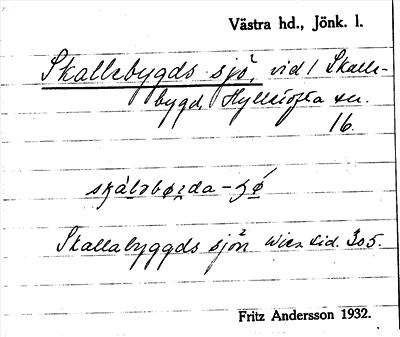 Västra hd., Jönk. l.
Skallebygds sjö, vid / Skalle-
bygd, Hylletofta sn.
16.
Skallabyggds sjön Wies. sid. 305.
Fritz Andersson 1932.